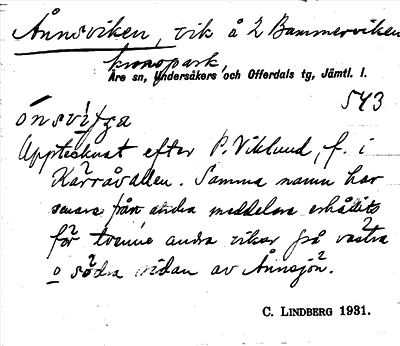 Ånnsviken, vik å 2 Bammerviken
kronopark,
Åre sn, Undersåkers och Offerdals tg, Jämtl. l.
543
ónsvı̆ƒga
Upptecknat efter P. Viklund, f. i
Kårråvallen. Samma namn har
senare från andra meddelare erhållits
för tvenne andra vikar på västra
o södra sidan av Ånnsjön.
C. LINDBERG 1931.